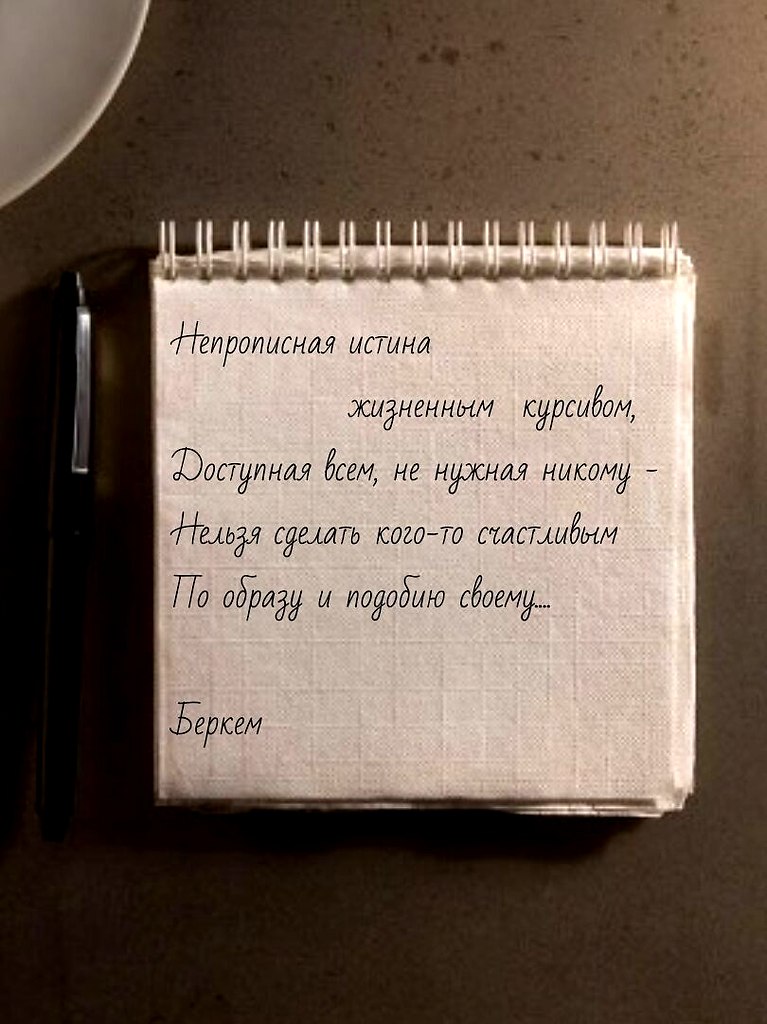 Непрописная истина
жизненным курсивом,
Доступная всем, не нужная никому -
Нельзя сделать кого-то счастливым
По образу и подобию своему....
Беркем